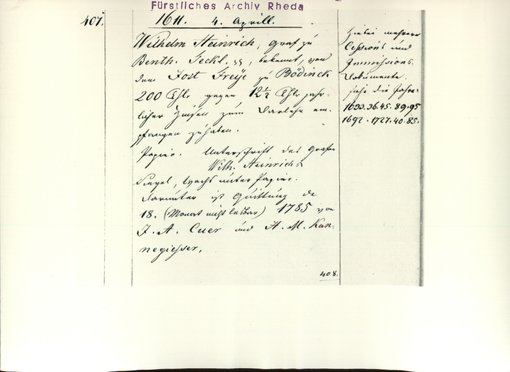 Fürstliches Archiv Rheda
407.
1611. 4. Aprill.
Wilhelm Heinrich, Graf zu
Benth. Teckl. pp, bekennt, von
dem Jost Freÿe zu Bödinck
200 Thlr. gegen 12½ Thlr. jähr-
licher Zinsen zum Darlehn em-
pfangen zu haben.
Papier. Unterschrift des Grafen
Wilh. Heinrich.
Siegel, Wachs unter Papier.
Darunter ist Quittung de
18. (Monat nicht lesbar) 1785 von
J. A. Cuer und A. M. Kan-
negiesser.
408.
Hiebei mehrere
Cessions und
Immissions
Dokumente
siehe die Jahre
1633. 36. 45. 89. 95
1692. 1727. 40. 85.